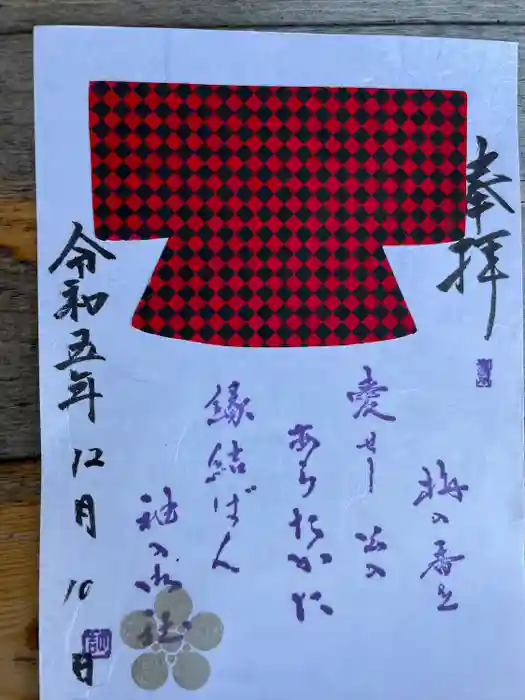 奉拝
梅の香を
愛せし公の
あらたかに
縁結ばん
袖の御社
令和五年12月10日